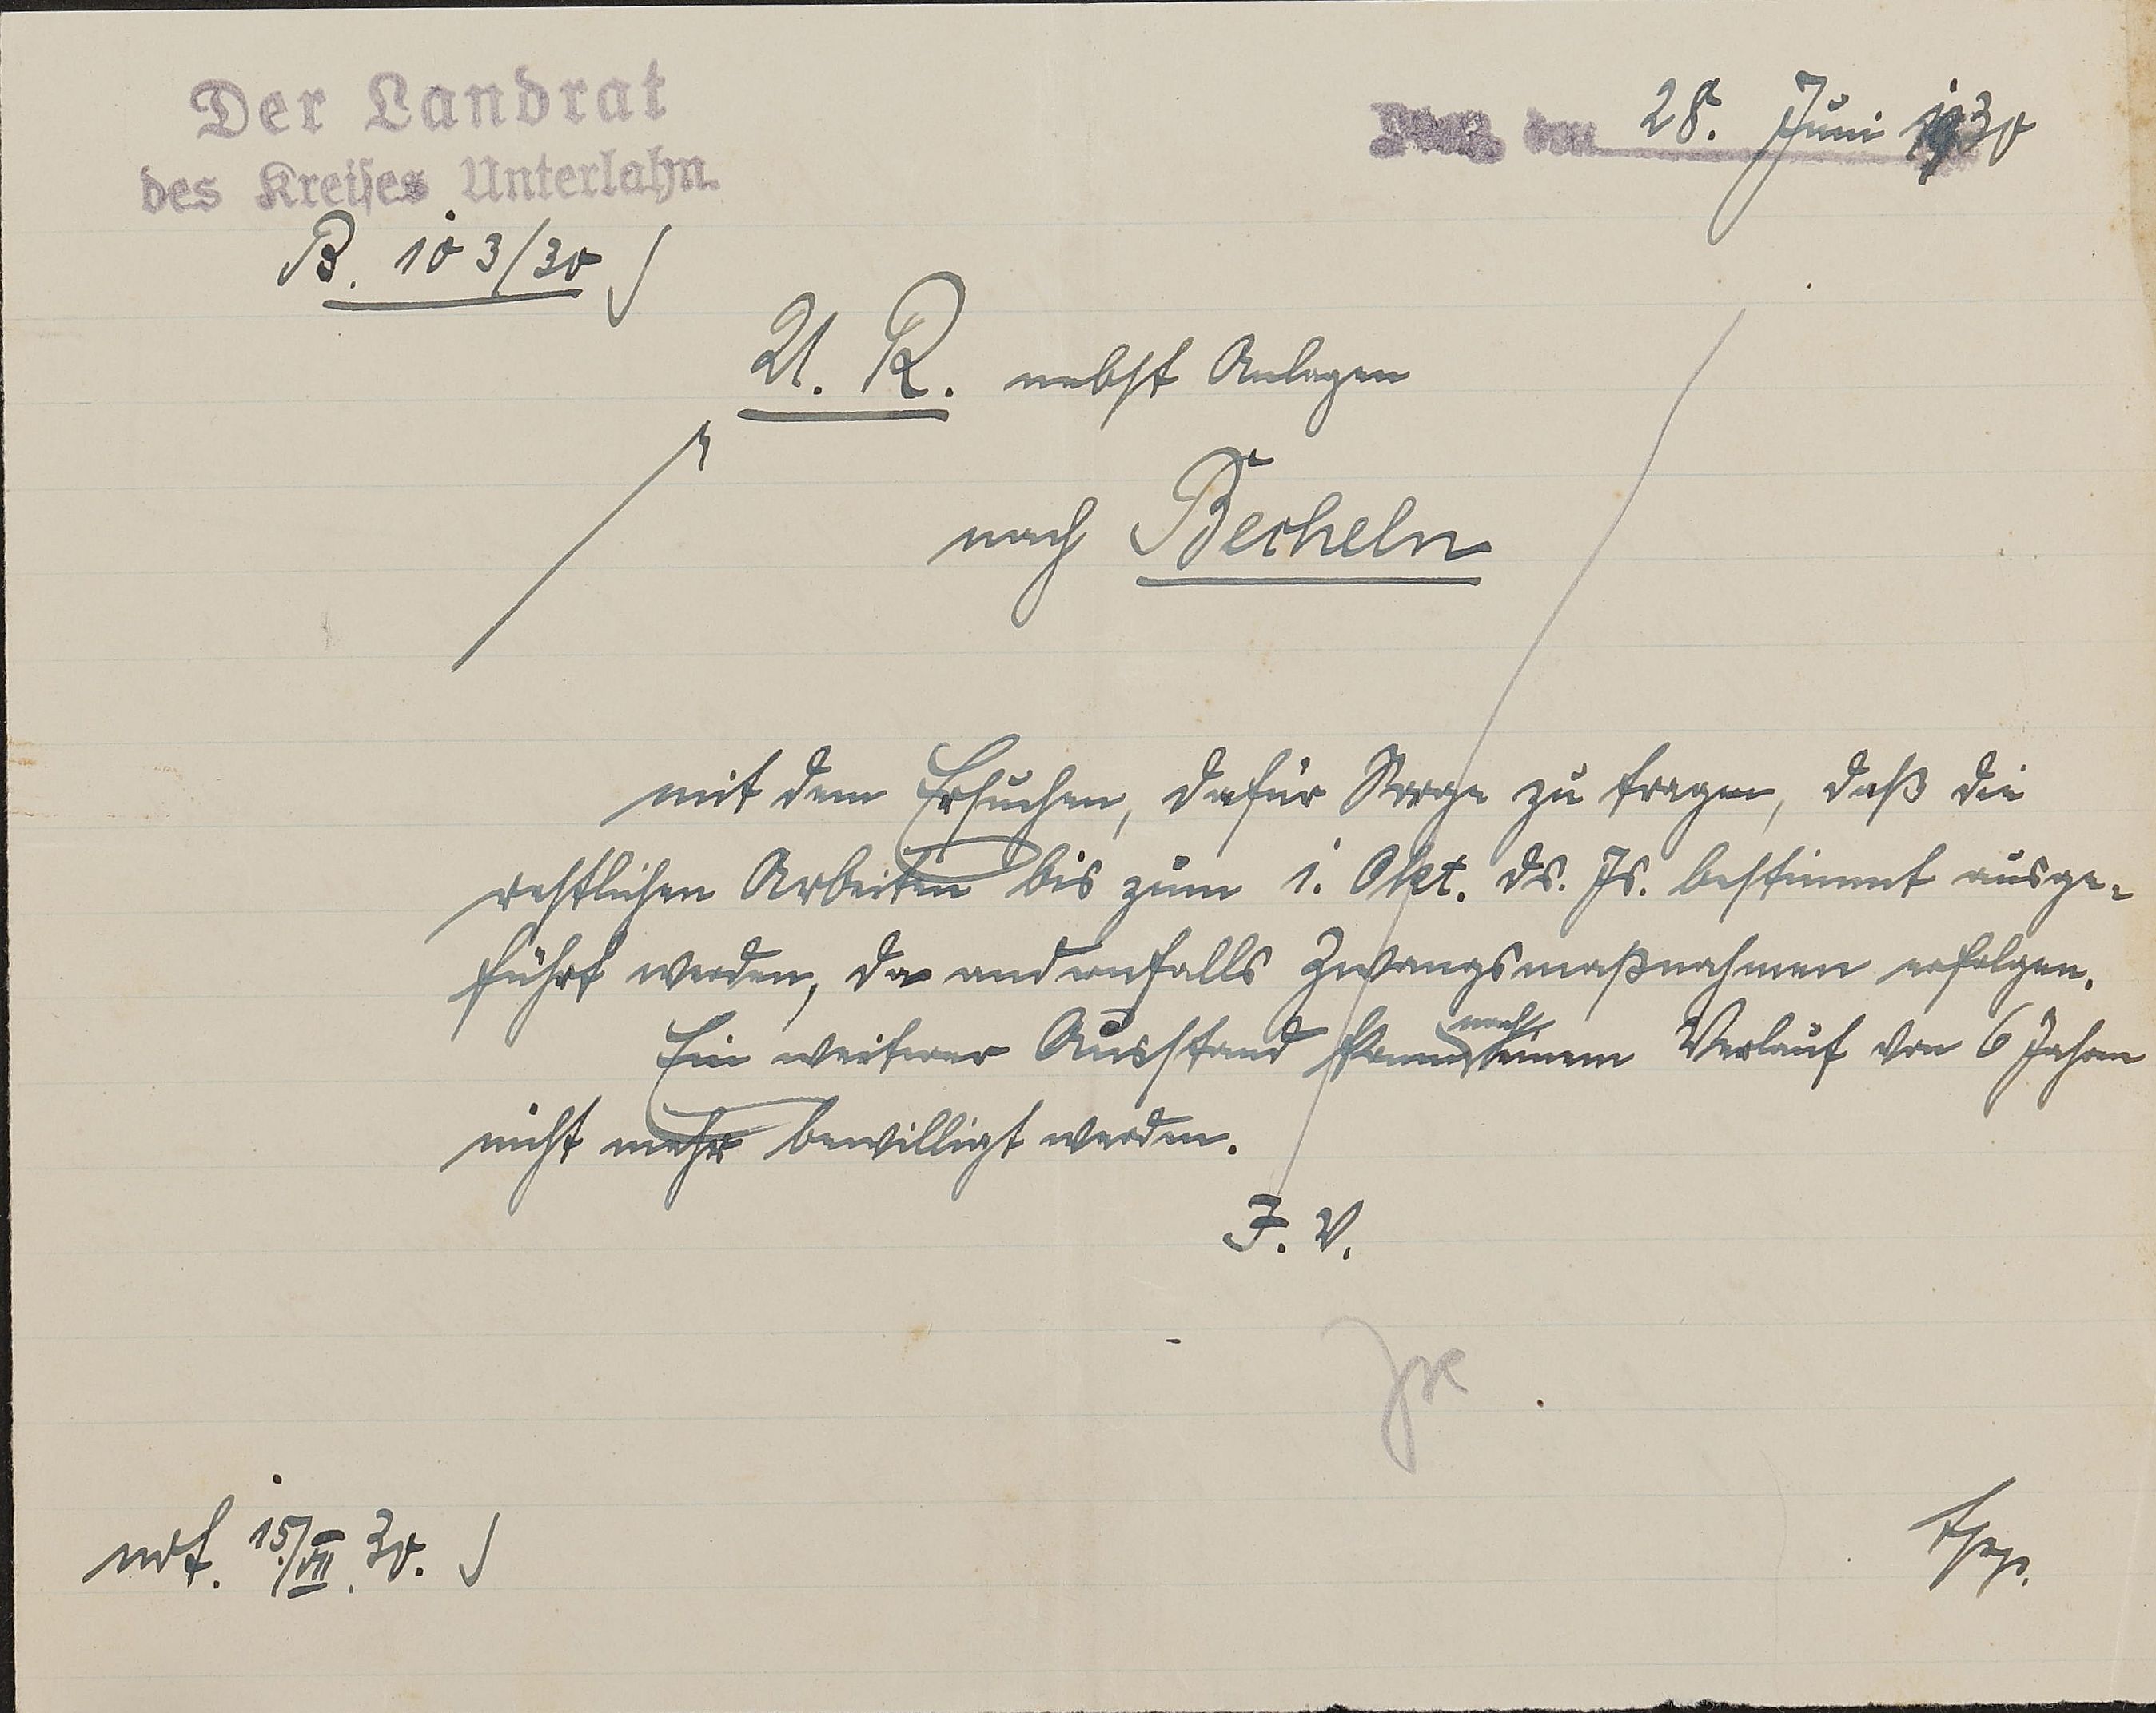 Der Landrat
des Kreises Unterlahn.
Diez, den 28. Juni 1930
B. 103/30
U. R. nebst Anlagen
nach Becheln
mit dem Ersuchen, dafür Sorge zu tragen, daß die
restlichen Arbeiten bis zum 1. Okt. ds. Js. bestimmt ausge-
führt werden, da andernfalls Zwangsmaßnahmen erfolgen.
Ein weiterer Ausstand kann nach einem Verlauf von 6 Jahren
nicht mehr bewilligt werden.
I. V.
not. 15/VII. 30.